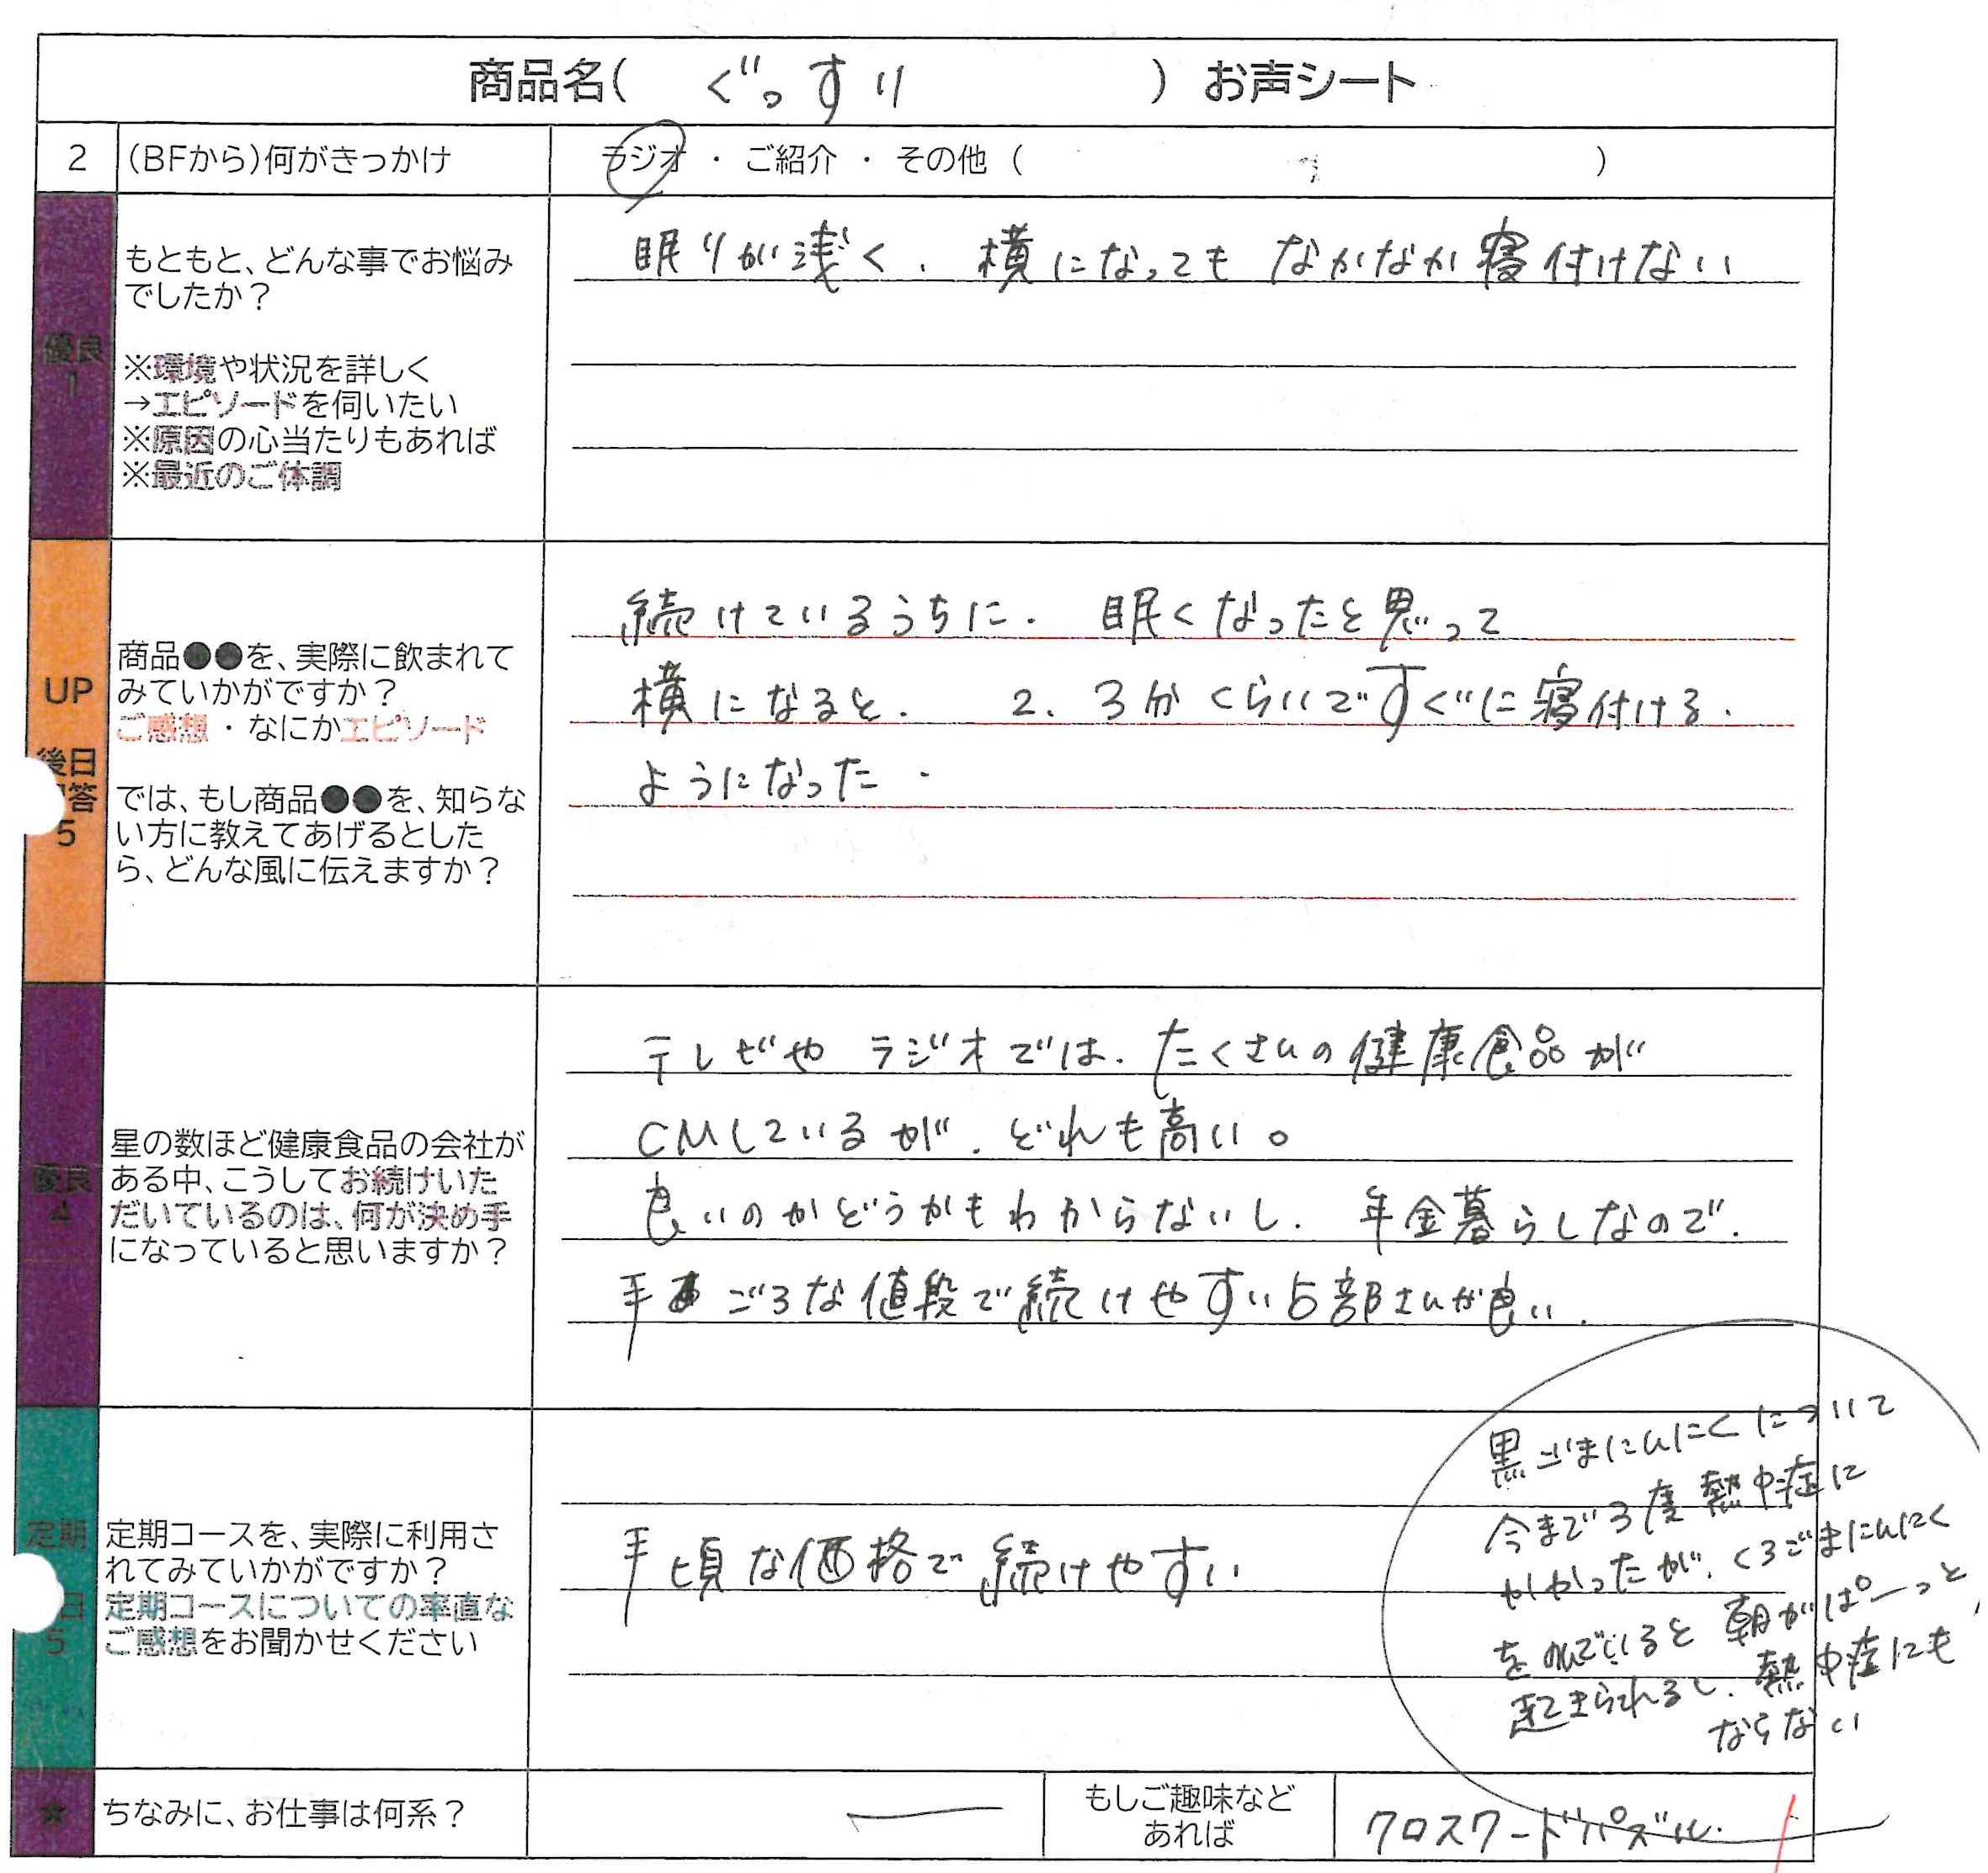 商品名( ぐっすり ) お声シート
2 (BFから)何がきっかけ ラジオ ・ ご紹介 ・ その他 ( )
優良
1
もともと、どんな事でお悩み
でしたか?
※環境や状況を詳しく
→エピソードを伺いたい
※原因の心当たりもあれば
※最近のご体調
眠りが浅く、横になっても なかなか寝付けない
UP
後日
答
5
商品●●を、実際に飲まれて
みていかがですか?
ご感想・なにかエピソード
では、もし商品●●を、知らな
い方に教えてあげるとした
ら、どんな風に伝えますか?
続けているうちに、眠くなったと思って
横になると、 2、3分くらいですぐに寝付ける
ようになった.
優良
4
星の数ほど健康食品の会社が
ある中、こうしてお続けいた
だいているのは、何が決め手
になっていると思いますか?
テレビや ラジオでは、たくさんの健康食品が
CMしているが、どれも高い。
良いのかどうかもわからないし、年金暮らしなので、
手ごろな値段で続けやすい部さんが良い.
定期
日
5
定期コースを、実際に利用さ
れてみていかがですか?
定期コースについての率直な
ご感想をお聞かせください
手頃な価格で続けやすい
黒ごまにんにくについて
今まで3度熱中症に
かかったが、くろごまにんにく
をのんでいると朝がぱーっと
起きられるし、熱中症にも
ならない
★ ちなみに、お仕事は何系? ー
もしご趣味など
あれば
クロスワードパズル.